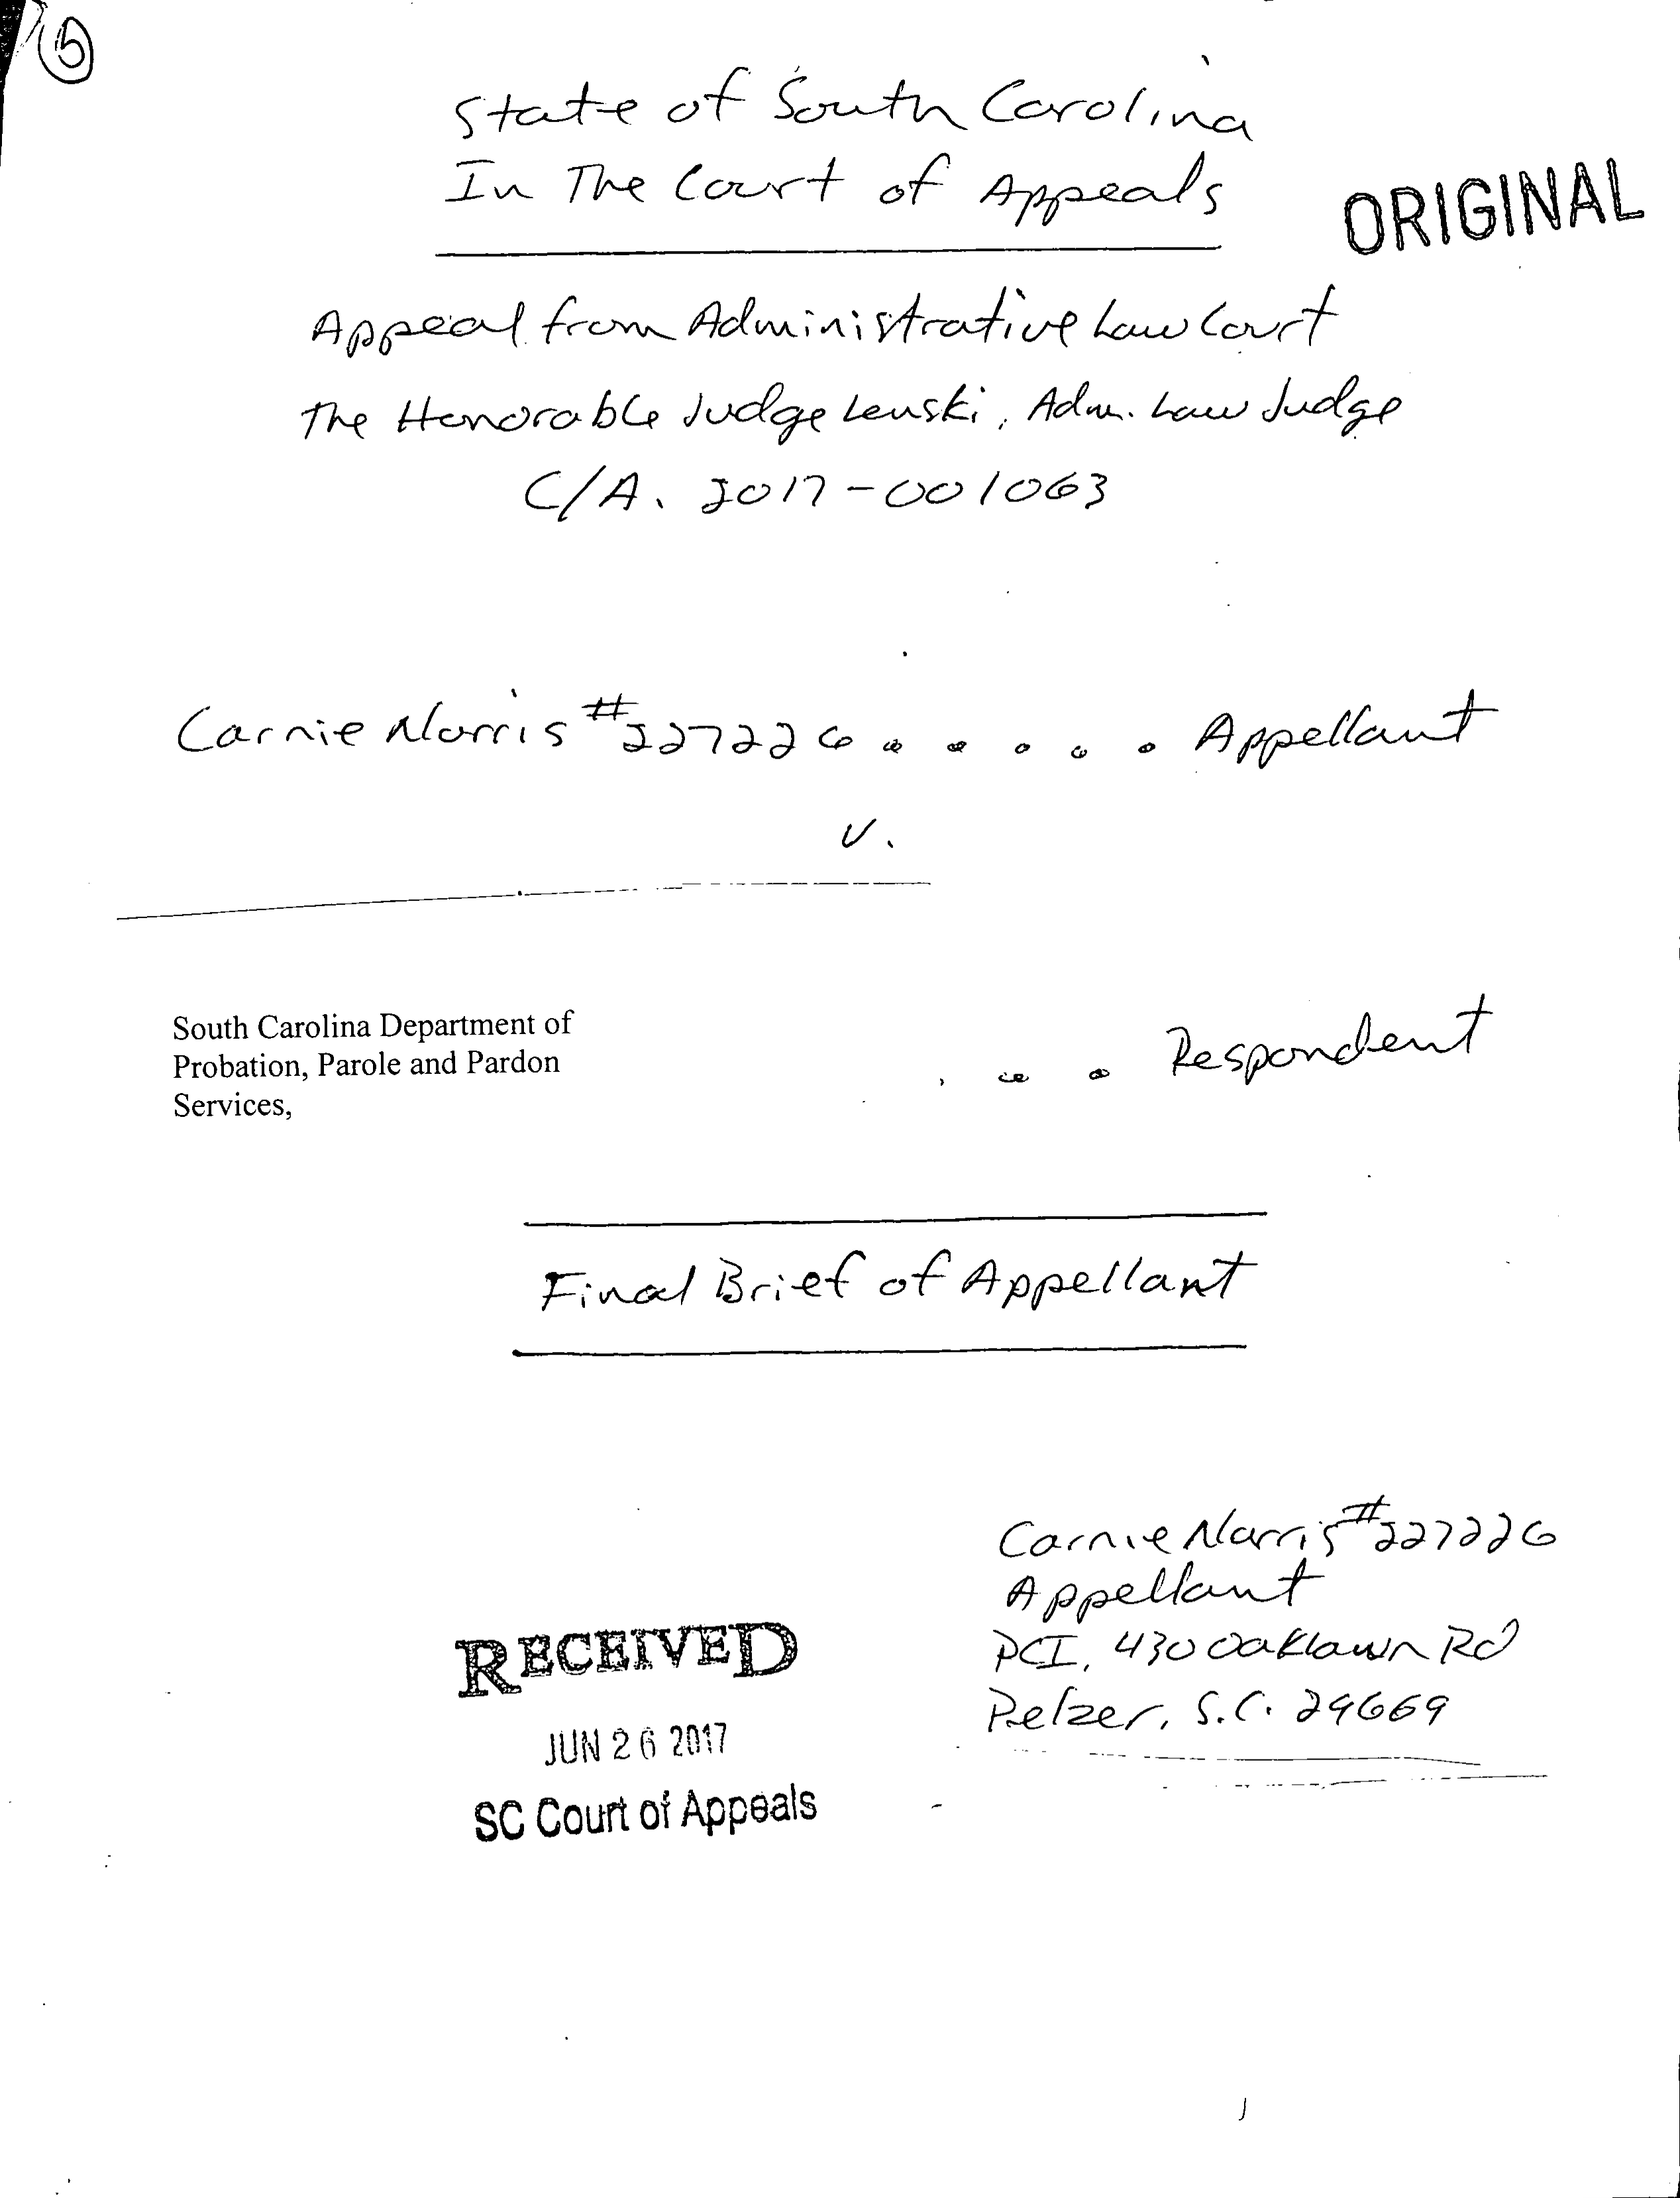 5
State of South Carolina
In The Court of Appeals
ORIGINAL
Appeal from Administrative Law Court
The Honorable Judge Lenski, Adm. Law Judge
C/A. 2017-001063
Carnie Norris #227226 . . . . . Appellant
v.
South Carolina Department of
Probation, Parole and Pardon
Services,
. . . Respondent
Final Brief of Appellant
Carnie Norris #227226
Appellant
PCI, 430 Oaklawn Rd
Pelzer, S.C. 29669
RECEIVED
JUN 26 2017
SC Court of Appeals